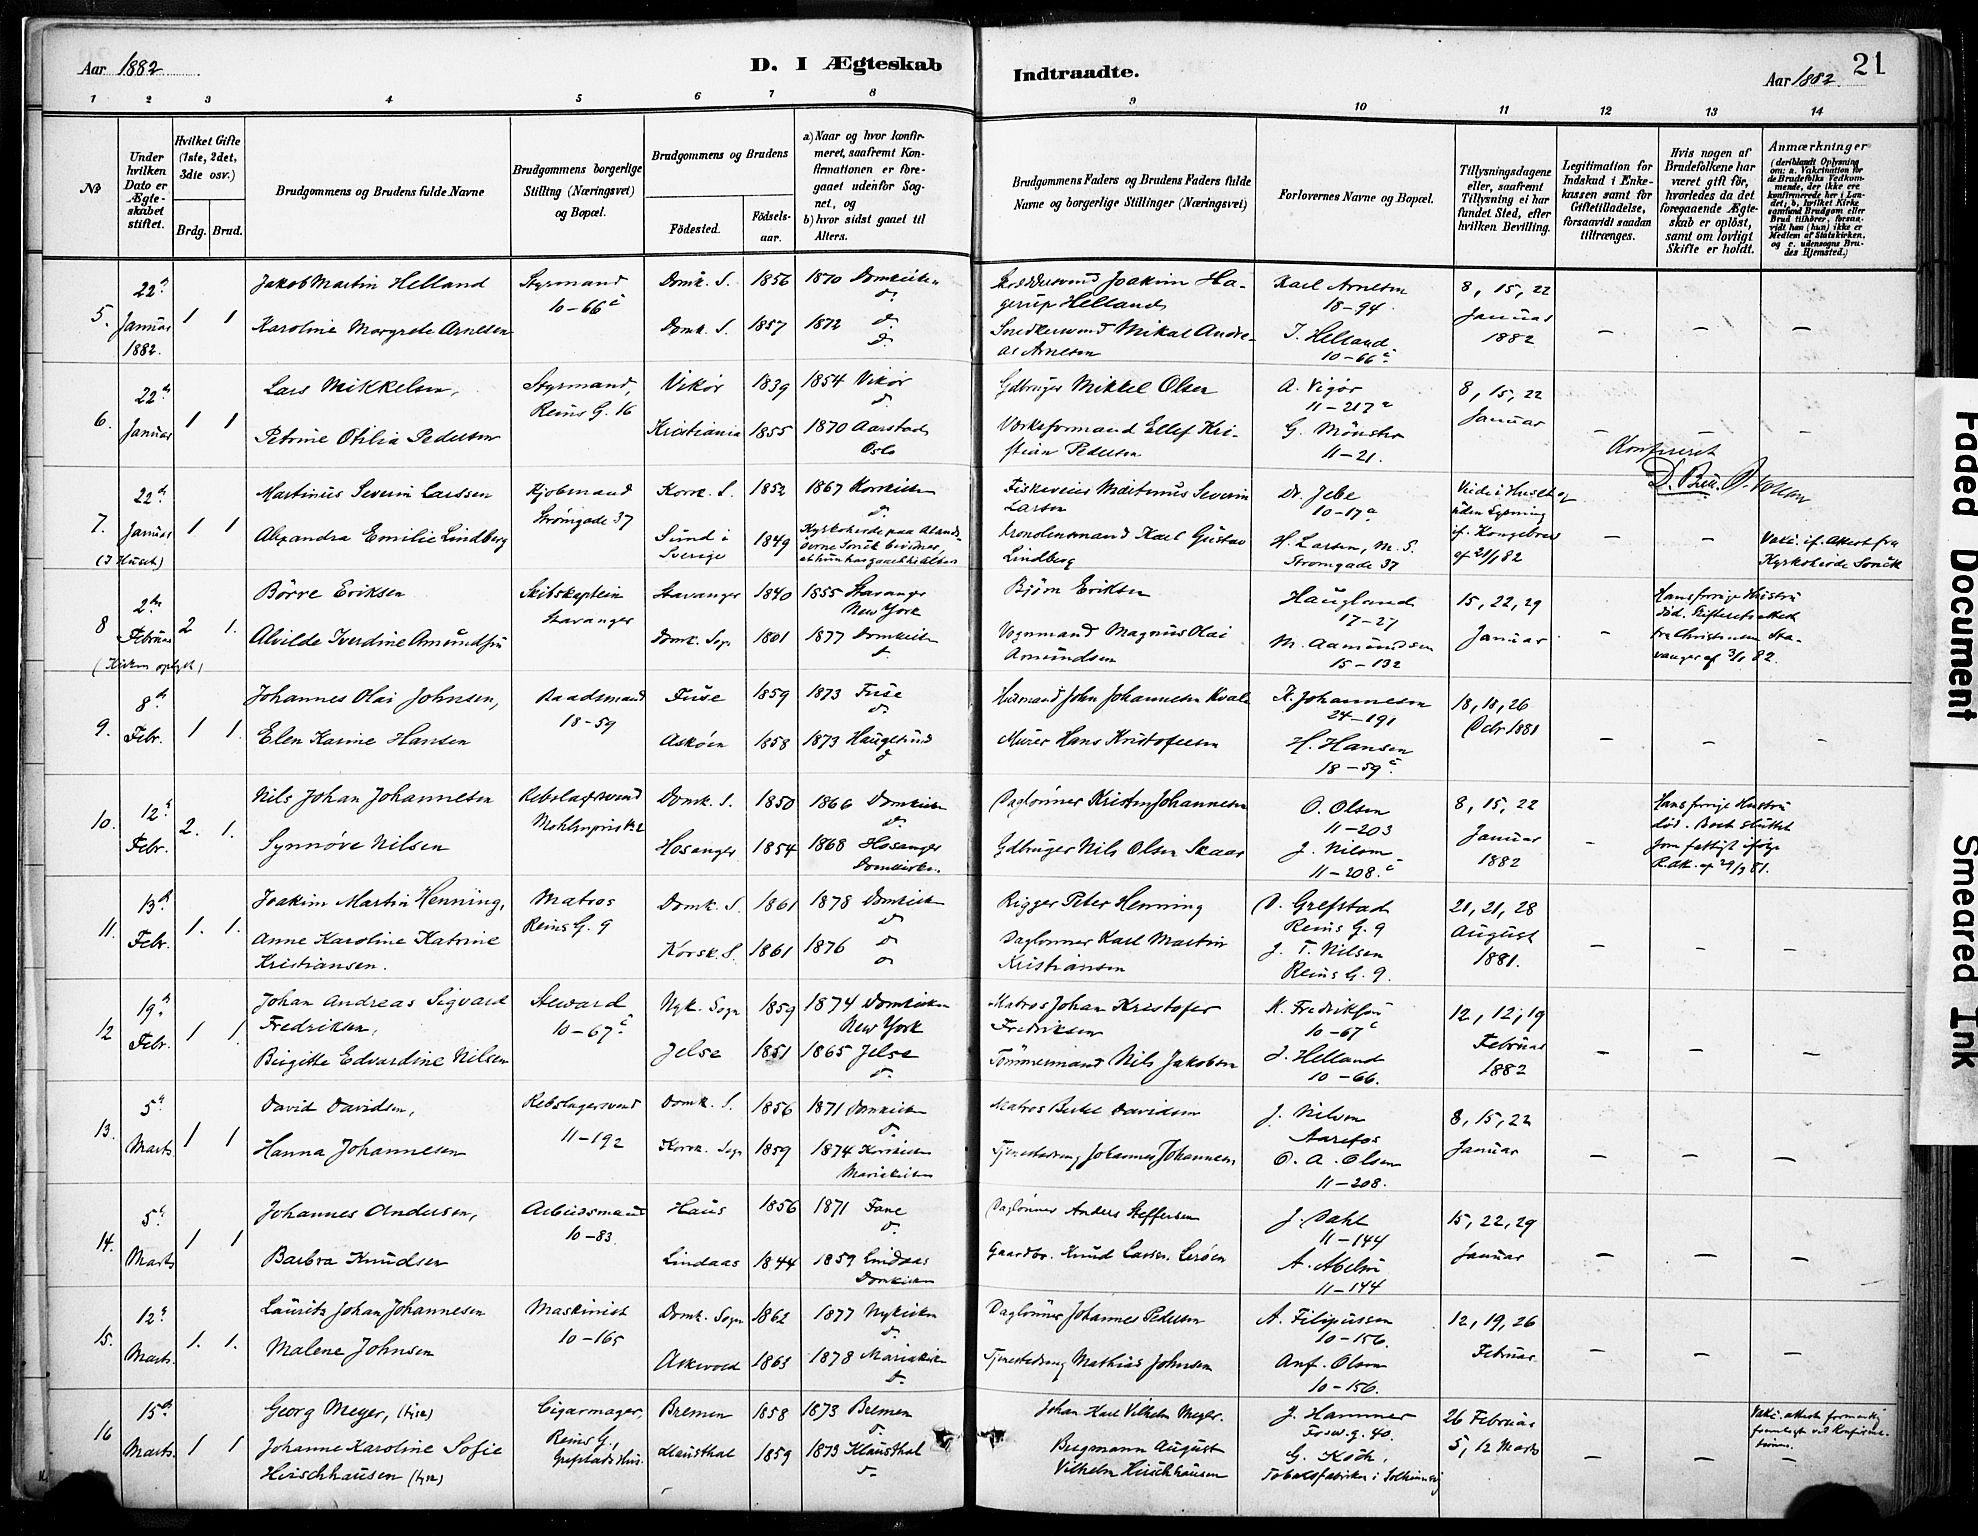 Aar 1882
D. I Ægteskab
Indtraadte.
Aar 1882.
21
1 2 3 4 5 6 7 8 9 10 11 12 13 14
No
Under hvilken Dato er Ægteskabet stiftet.
Hvilket Gifte (1ste, 2det, 3die osv.)
Brdg. Brud.
Brudgommens og Brudens fulde Navne
Brudgommens borgerlige Stilling (Næringsvei) og Bopæl.
Brudgommens og Brudens
Fødested.
Fødselsaar.
a) Naar og hvor konfirmeret, saafremt Konfirmationen er foregaaet udenfor Sognet, og
b) hvor sidst gaaet til Alters.
Brudgommens Faders og Brudens Faders fulde Navne og borgerlige Stillinger (Næringsvei)
Forlovernes Navne og Bopæl.
Tillysningsdagene eller, saafremt Tillysning ei har fundet Sted, efter hvilken Bevilling.
Legitimation for Indskud i Enkekassen samt for Giftetilladelse, forsaavidt saadan tiltrænges.
Hvis nogen af Brudefolkene har været gift før, hvorledes da det foregaaende Ægteskab er opløst, samt om lovligt Skifte er holdt.
Anmærkninger (deriblandt Oplysning om: a. Vakcination for de Brudefolks Vedkommende, der ikke ere konfirmerede her i Landet; b. hvilket Kirkesamfund Brudgom eller Brud tilhører, forsaavidt han (hun) ikke er Medlem af Statskirken, og c. udensogns Brudes Hjemsted.)
5. 22de Januar 1882. 1 1
Jakob Martin Helland
Styrmand 10-66c
Domk. S. 1856 1870 Domkirken do.
Joakim Hagerup Helland
Karl Arnesen 18-94
8, 15, 22 Januar 1882
Karoline Margrete Arnesen
Domk. S. 1857 1872 do. do.
Snedkersvend Mikal Andreas Arnesen
J. Helland 10-66c.
6. 22de Januar 1 1
Lars Mikkelsen,
Styrmand, Reins G. 16
Vikør 1839 1854 Vikør do.
Gdbruger Mikkel Olsen
A. Vigør 11-217a
8, 15, 22 Januar
Petrine Otilia Pedersen
Kristiania 1855 1870 Aarstad Oslo
Værksformand Ellef Kristian Pedersen
G. Mønster 11-21.
Konfereret
7. 22de Januar (I Huset) 1 1
Martinus Severin Larssen
Kjøbmand Strømgade 37
Korsk. S. 1852 1867 Korskirken do.
Martinus Severin Larsen
Dr. Jebe 10-17a
Viede i Huset og uden Lysning if. Kongebrev af 21/1 82
Alexandra Emilie Lindberg
Sund i Sverige 1849
Karl Gustav Lindberg
H. Larsen, M. S. Strømgade 37
Vakc. if. Attest fra Kyrkoherde
8 2den Februar (Kirken oplyst) 2 1.
Børre Eriksen
Skibskaptein Stavanger
Stavanger 1840 1855 Stavanger New York
Bjørn Eriksen
Haugland 17-27
15, 22, 29 Januar
Hans forrige Hustru død. Skifteretsattest fra Christensen Stavanger af 3/1 82.
Alvilde Iverdine Amundsen
Domk. Sogn 1801 1877 Domkirken do.
Vognmand Magnus Olai Amundsen
M. Aamundsen 15-132
9. 8de Febr. 1 1.
Johannes Olai Johnsen,
Baadsmand 18-59
Fuse 1859 1873 Fuse do.
Husmand John Johannesen Kvale
K. Johannesen 24-191
18, 18, 26 Debr 1881
Elen Karine Hansen
Askøen 1858 1873 Haugesund do
Murer Hans Kristofersen
H. Hansen 18-59c.
10. 12te Febr. 2. 1.
Nils Johan Johannesen
Rebslagersvend Møhlenpris
Domk. S. 1850 1866 Domkirken do.
Daglønner Kristen Johannesen
O. Olsen 11-203
8, 15, 22 Januar 1882
Hans forrige Hustru død. Boet sluttet som fattigt ifølge
Synnøve Nilsen
Hosanger 1854 1868 Hosanger Domkirken.
Gdbruger Nils Olsen Skaar
J. Nilsen 11-208.c
11. 13de Febr. 1. 1.
Joakim Martin Henning,
Matros Reins G. 9
Domk. S. 1861 1878 Domkirken do
Rigger Peter Henning
O. Grefstad Reins G. 9
21, 21, 28 August 1881.
Anne Karoline Katrine Kristiansen.
Korsk. S. 1861 1876 do do
Daglønner Karl Martin Kristiansen
J. T. Nilsen Reins G. 9.
12 19de Febr. 1 1.
Johan Andreas Sigvard Fredriksen,
Steward 10-67c
Nyk. Sogn 1859 1874 Domkirken New York
Matros Johan Kristofer Fredriksen
K. Fredriksen 10-67c
12, 12, 19 Februar 1882
Birgitte Edvardine Nilsen
Jelse 1851 1865 Jelse do.
Tømmermand Nils Jakobsen
J. Helland 10-66.
13. 5te Marts 1 1
David Davidsen,
Rebslagersvend 11-192
Domk. S. 1856 1871 Domkirken do.
Matros Berke Davidsen
J. Nilsen
8, 15, 22 Januar
Hanna Johannesen
Korsk. Sogn 1859 1874 Korskirken Mariekirken
Tjenestedreng Johannes Johannesen
O. A. Olsen 11-208.
14. 5te Marts 1 1
Johannes Andersen,
Arbeidsmand 10-83.
Haus 1856 1871 Fane do.
Dagløner Anders Steffersen
J. Dahl 11-144
15, 22, 29 Januar
Barbra Knudsen
Lindaas 1844 1859 Lindaas Domkirken
Gaardbr. Knud Larsen Lerøen
A. Abelsen 11-144
15. 12te Marts. 1. 1.
Lauritz Johan Johannesen
Maskinist 10-165
Domk. Sogn 1862 1877 Nykirken do.
Dagløner Johannes Pedersen
A. Filipussen 10-156
12, 19, 26 Februar
Malene Johnsen
Askevold 1863 1878 Mariakirken do.
Tjenestedreng Mathias Johnsen
Anf. Olsen 10-156.
16 15de Marts 1 1
Georg Meyer, (tysk)
Cigarmager, Reins G., Grefstads Hus.
Bremen 1858 1873 Bremen do.
Johan Karl Vilhelm Meyer.
J. Hammer 40.
26 Februar 5, 12 Marts
Vakc. attester
Johanne Karoline Sofie Hirschhausen (tysk)
Klausthal 1859 1873 Klausthal do.
Bergmann August Vilhelm Hirschhausen
G. Koch, Tobaksfabrikør i Solheimsvig
Faded Document
Smeared Ink